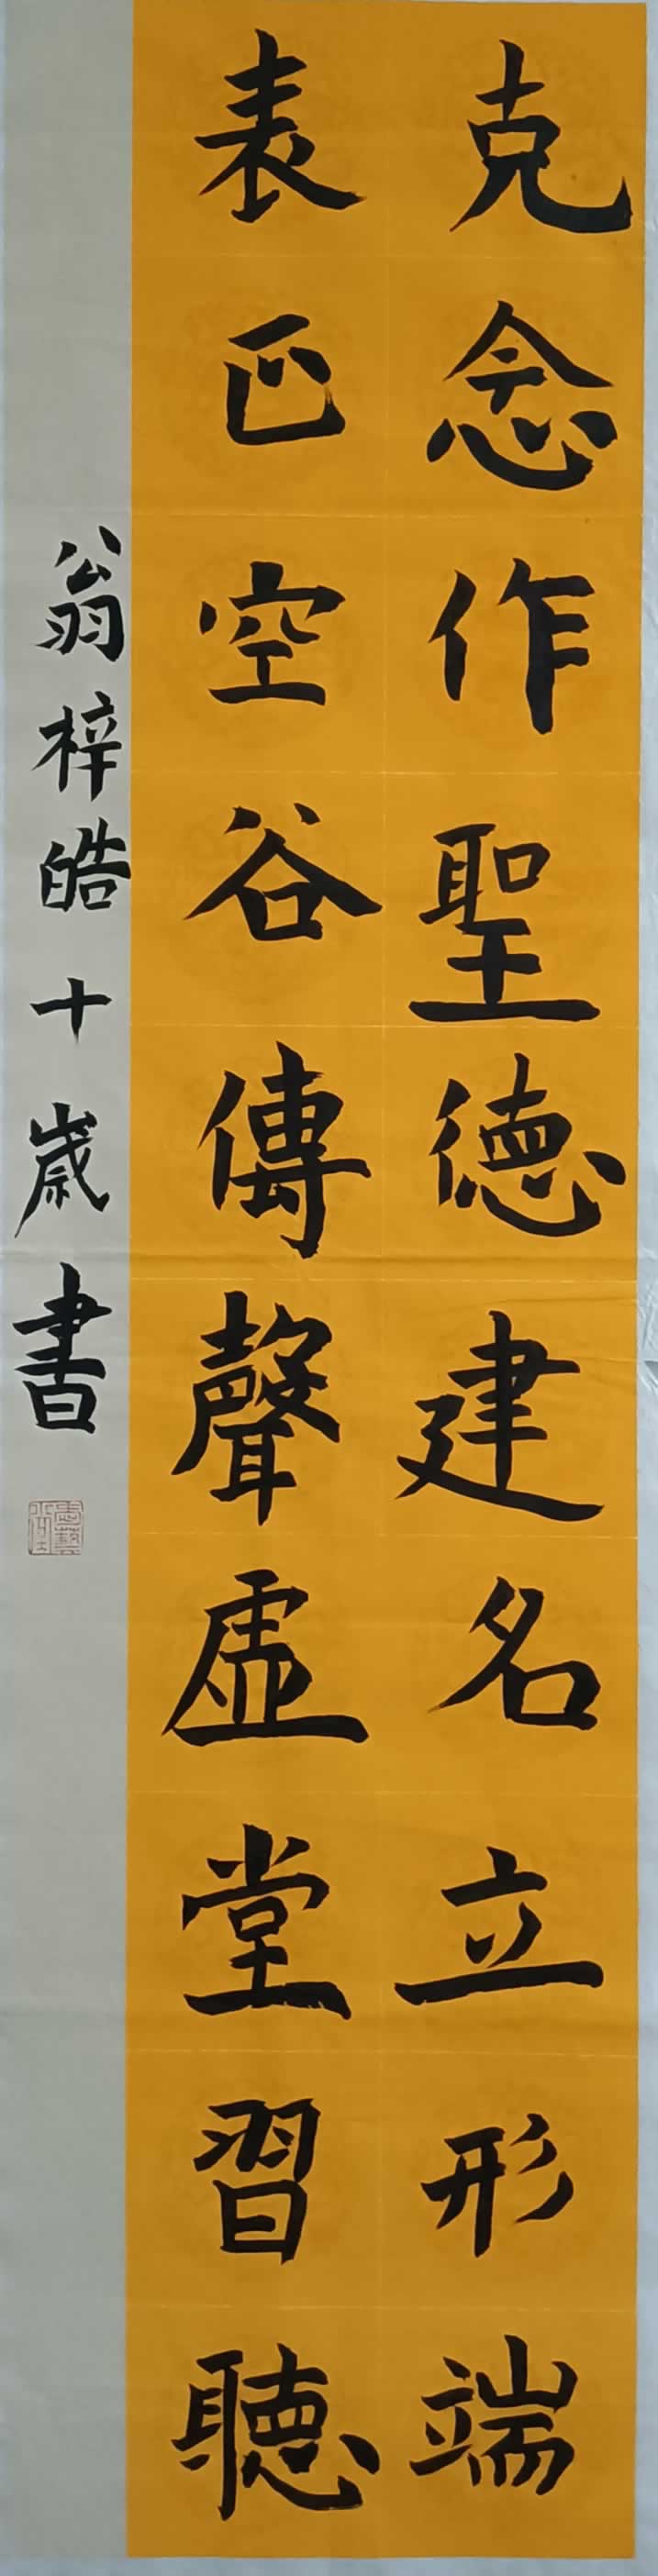 克念作聖德建名立形端
表正空谷傳聲虛堂習聽
翁梓皓十歲書